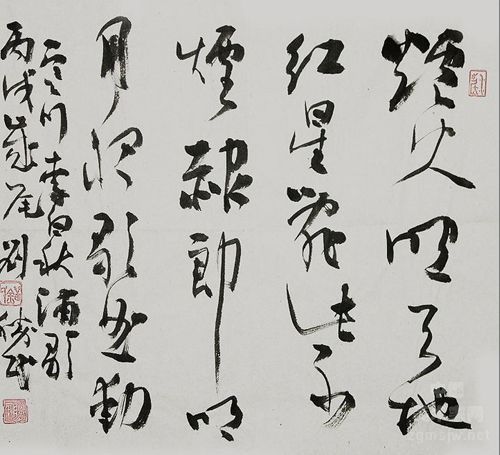 爐火照天地
紅星亂紫
煙赧郎明
月夜歌曲動
寒川 李白秋浦歌
丙戌歲尾劉